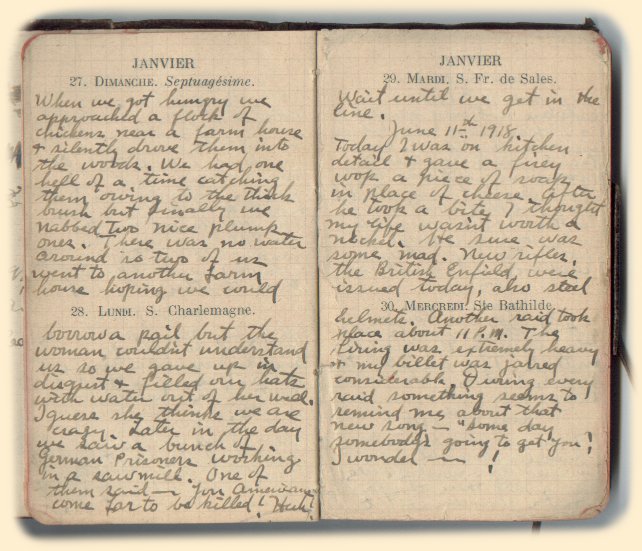 JANVIER
27. DIMANCHE. Septuagésime.
When we got hungry we
approached a flock of
chickens near a farm house
& silently drove them into
the woods. We had one
hell of a time catching
them owing to the thick
brush but finally we
nabbed two nice plump
ones. There was no water
around so two of us
went to another farm
house hoping we could
28. LUNDI. S. Charlemagne.
borrow a pail but the
woman couldn't understand
us so we gave up in
disgust & filled our hats
with water out of her well.
I guess she thinks we are
crazy. Later in the day
we saw a bunch of
German Prisoners working
in a sawmill. One of
them said — You Americans
come far to be killed! Huh!
JANVIER
29. MARDI. S. Fr. de Sales.
Wait until we get in the
line.
June 11th 1918
Today I was on kitchen
detail & gave a firey
wop a piece of soap
in place of cheese. After
he took a bite, I thought
my life wasn't worth a
nickel. He sure was
some mad. New rifles,
the British Enfield, were
issued today, also steel
30. MERCREDI. Ste Bathilde.
helmets. Another raid took
place about 11 P.M. The
firing was extremely heavy
& my billet was jarred
considerable. During every
raid something seems to
remind me about that
new song — "Some day
somebody's going to get you"!
I wonder — — !